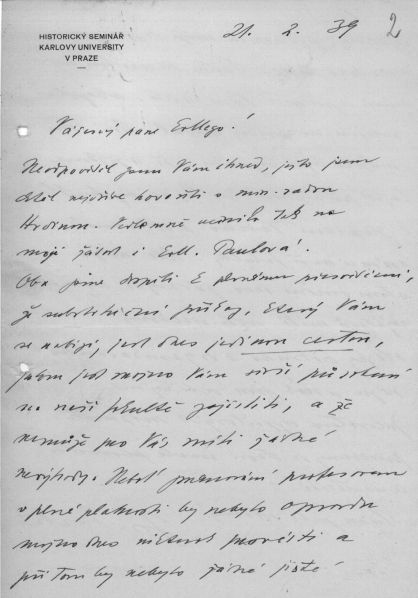 HISTORICKÝ SEMINÁŘ
KARLOVY UNIVERSITY
V PRAZE
21. 2. 39
2
Vážený pane kollego!
Neodpověděl jsem Vám ihned, ježto jsem
chtěl nejdříve hovořiti s min. radou
Hrdinou. Vedle mně učinila tak na
moji žádost i koll. Paulová.
Oba jsme dospěli k plnému přesvědčení,
že substituční příkaz, který Vám
se nabízí, jest dnes jedinou cestou,
jakou jest možno Vám širší působení
na naší fakultě zajistiti, a že
nemůže pro Vás míti žádné
nevýhody. Neboť jmenování profesorem
v plné platnosti by nebylo opravdu
možno dnes provésti a
při tom by nebylo žádné jisté